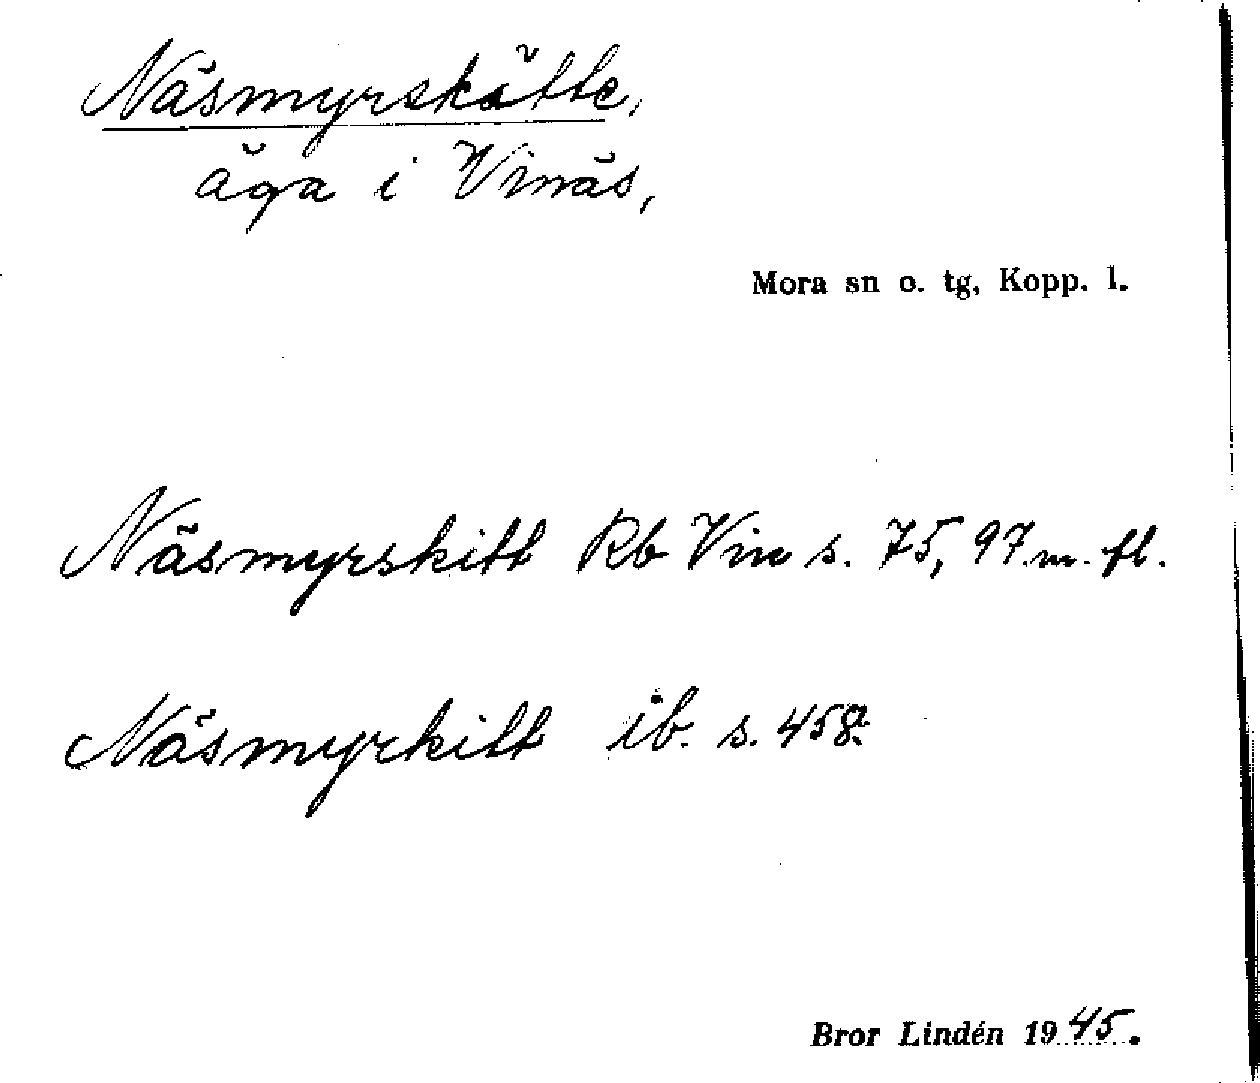 Näsmyrskätte,
äga i Vinäs,
Mora sn o. tg, Kopp. l.
Näsmyrskitt Rb Vin s. 75, 97 m. fl.
Näsmyrkitt ib. s. 458.
Bror Lindén 1945.